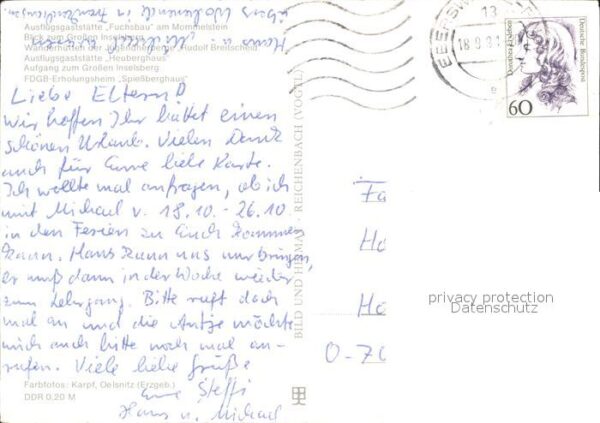 Ausflugsgaststätte „Fuchsbau" am Mommelstein
Blick vom Großen Inselsberg
Wanderhütten der Jugendherberge „Rudolf Breitscheid"
Ausflugsgaststätte „Heuberghaus"
Aufgang zum Großen Inselsberg
FDGB-Erholungsheim „Spießberghaus"
Liebe Eltern!
Wir hoffen Ihr hattet einen
schönen Urlaub. Vielen Dank
auch für Eure liebe Karte.
Ich wollte mal anfragen, ob ich
mit Michael v. 18.10. - 26.10.
in den Ferien zu Euch kommen
kann. Hans kann uns nur bringen,
er muß dann in der Woche wieder
zum Lehrgang. Bitte ruft doch
mal an und die Antje möchte
mich auch bitte noch mal an-
rufen. Viele liebe Grüße
Eure Steffi
Hans u. Michael
Farbfotos: Karpf, Oelsnitz (Erzgeb.)
DDR 0,20 M
BILD UND HEIMAT · REICHENBACH (VOGTL)
13
18.9.
Dorothea Erxleben
Deutsche Bundespost
60
Fa
Ho
Ho
0-70
privacy protection
Datenschutz